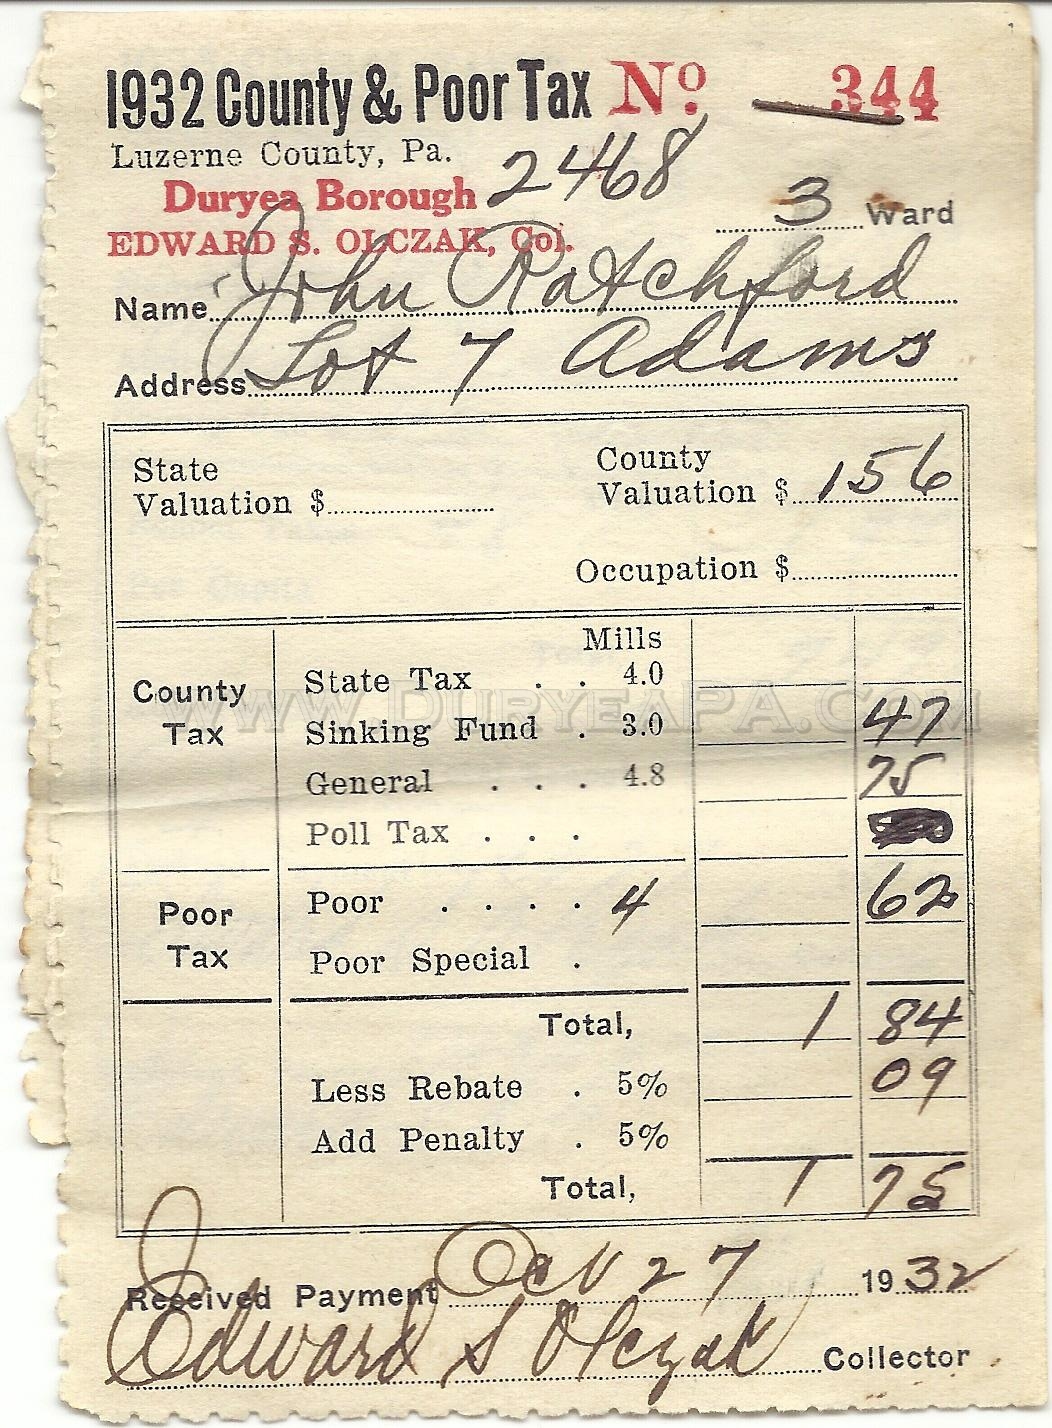 1932 County & Poor Tax No. 344
Luzerne County, Pa.
Duryea Borough 2468
3 Ward
EDWARD S. OLCZAK, Col.
Name John Ratchford
Address Lot 7 Adams
State
Valuation $
County
Valuation $ 156
Occupation $
Mills
County
Tax
State Tax . . 4.0
Sinking Fund . 3.0 47
General . . . 4.8 75
Poll Tax . . .
Poor
Tax
Poor . . . . . 4 62
Poor Special .
Total, 1 84
Less Rebate . 5% 09
Add Penalty . 5%
Total, 1 75
Received Payment Oct 27 1932
Edward S Olczak Collector
www.DuryeaPA.com